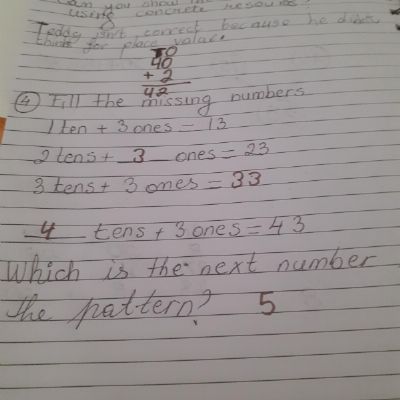 can you show the
using concrete resources
Teddy isn't correct because he didn't
think for place valace
TO
40
+ 2
42
4 Fill the missing numbers
1 ten + 3 ones = 13
2 tens + 3 ones = 23
3 tens + 3 ones = 33
4 tens + 3 ones = 43
Which is the next number
the pattern? 5